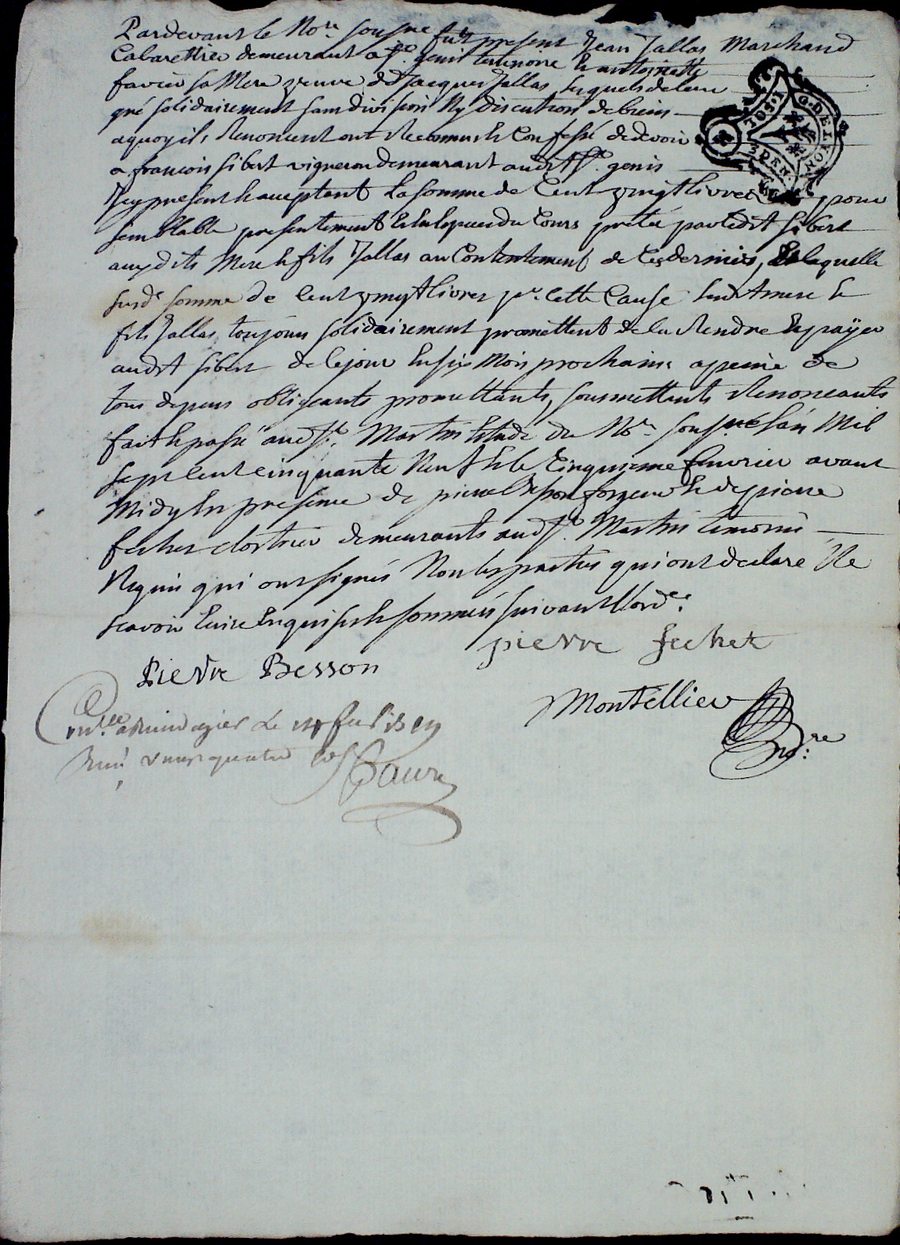 Pardevant le No.re soussigné fut present Jean Jallas Marchand
Cabarettier demeurant a S.t Genis terrenoire & antoinette
favier sa Mere veuve de Jacques Jallas lesquels de leur
gré solidairement sans division Ny discution de biens
aquoy ils Renoncent ont Reconnu & Confessé de devoir
a francois sibert vigneron demeurant audit S.t genis
icy present & acceptant La somme de Cent vingt livres pour
semblable presentement & en especes du Cours pretée par ledit sibert
auxdits Mere & fils Jallas au Contentement de ces derniers, Laquelle
susd.e somme de Cent vingt livres p.r cette Cause lesd. mere &
fils Jallas toujours solidairement promettent de la Rendre & payer
audit sibert de ce jour en six Mois prochains a peine de
tous depens obligeants promettants, soumettants Renonceants
fait & passé aud. S.t Martin Etude du No.re sousigné L'an Mil
sept cent cinquante Neuf & le Cinquieme fevrier avant
Midy En presence de pierre Besson forgeur & de pierre
fechet cloutrier demeurants aud. S.t Martin temoins
Requis qui ont signés Non les parties qui ont declaré Ne
scavoir Ecrire Enquises & sommées suivant l'ord.ce
pierre fechet
Pierre Besson
Montellier
No.re
Con.llé a Rivedegier Le
Reçu vingt quatre sols
Faure